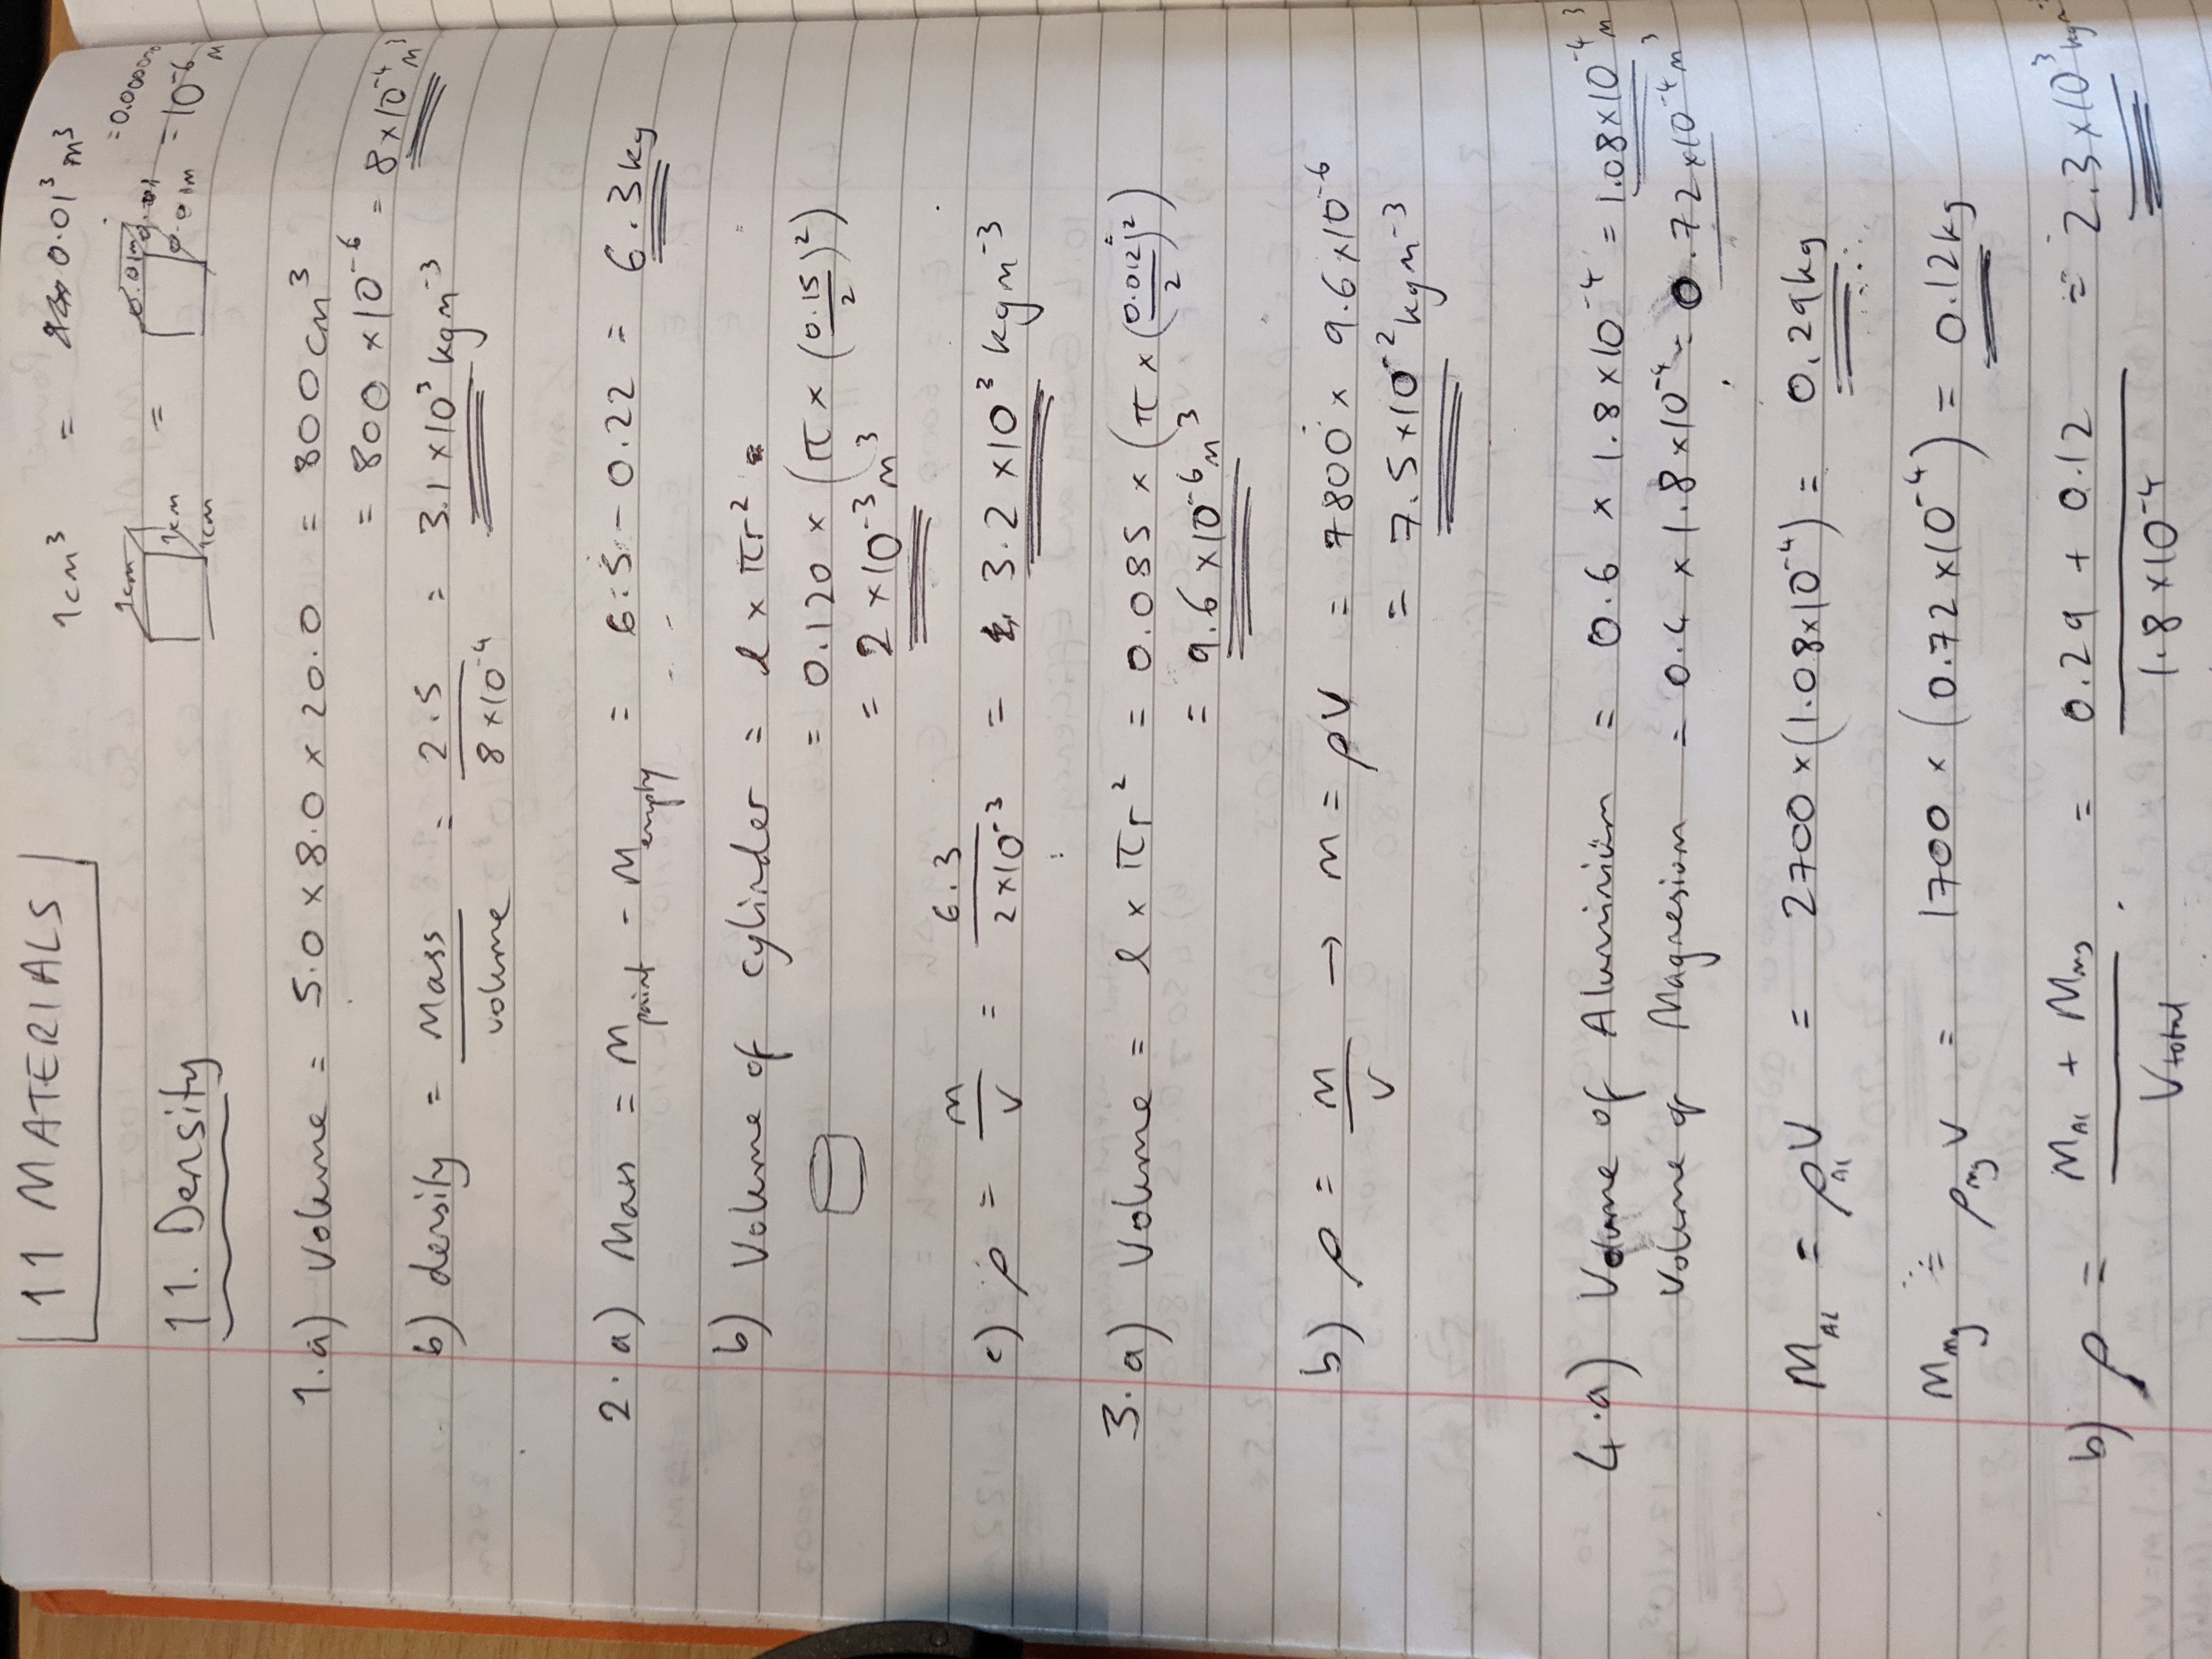 11 MATERIALS
1cm³ = 0.01³ m³
1cm 1cm 1cm = 0.01m 0.01 0.01m = 10⁻⁶ m³
11. Density
1.a) Volume = 5.0 x 8.0 x 20.0 = 800 cm³
= 800 x 10⁻⁶ = 8 x 10⁻⁴ m³
b) density = Mass / volume = 2.5 / 8 x 10⁻⁴ = 3.1 x 10³ kgm⁻³
2.a) Mass = M paint - M empty = 6.5 - 0.22 = 6.3 kg
b) Volume of cylinder = l x πr²
= 0.120 x (π x (0.15/2)²)
= 2 x 10⁻³ m³
c) ρ = m/v = 6.3 / 2 x 10⁻³ = 3.2 x 10³ kgm⁻³
3.a) Volume = l x πr² = 0.085 x (π x (0.012/2)²)
= 9.6 x 10⁻⁶ m³
b) ρ = m/v → m = ρV = 7800 x 9.6 x 10⁻⁶
= 7.5 x 10⁻² kgm⁻³
4.a) Volume of Aluminium = 0.6 x 1.8 x 10⁻⁴ = 1.08 x 10⁻⁴ m³
Volume of Magnesium = 0.4 x 1.8 x 10⁻⁴ = 0.72 x 10⁻⁴ m³
M Al = ρ Al V = 2700 x (1.08 x 10⁻⁴) = 0.29 kg
M mg = ρ mg V = 1700 x (0.72 x 10⁻⁴) = 0.12 kg
b) ρ = M Al + M mg / V total = 0.29 + 0.12 / 1.8 x 10⁻⁴ = 2.3 x 10³ kgm⁻³